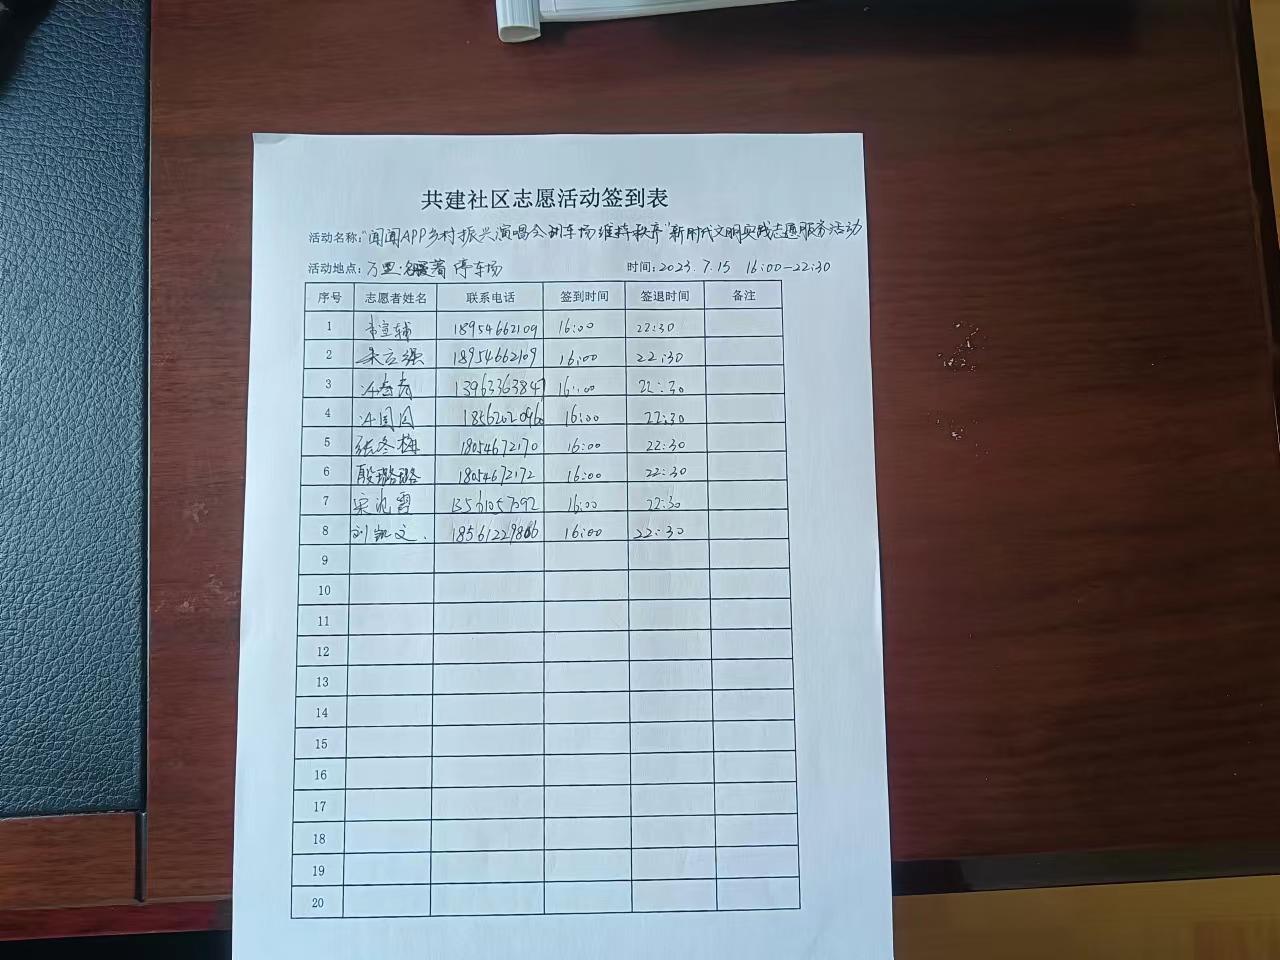 共建社区志愿活动签到表
活动名称："闻闻APP乡村振兴演唱会 停车场维持秩序"新时代文明实践志愿服务活动
活动地点：万里· 著 停车场 时间：2023.7.15 16:00-22:30
序号 志愿者姓名 联系电话 签到时间 签退时间 备注
1 18954662109 16:00 22:30
2 18954662109 16:00 22:30
3 13963363847 16:00 22:30
4 18562020960 16:00 22:30
5 张冬梅 18054672170 16:00 22:30
6 殷璐璐 18054672172 16:00 22:30
7 13561057092 16:00 22:30
8 刘凯文. 18561229806 16:00 22:30
9
10
11
12
13
14
15
16
17
18
19
20